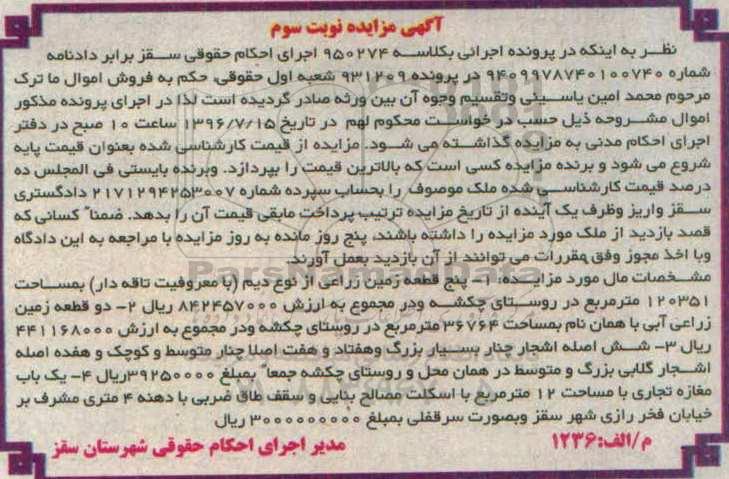 آگهی مزایده نوبت سوم
نظر به اینکه در پرونده اجرائی بکلاسه ۹۵۰۲۷۴ اجرای احکام حقوقی سقز برابر دادنامه
شماره ۹۴۰۹۹۷۸۷۴۰۱۰۰۷۴۰ در پرونده ۹۳۱۲۰۹ شعبه اول حقوقی، حکم به فروش اموال ما ترک
مرحوم محمد امین یاسینی وتقسیم وجوه آن بین ورثه صادر گردیده است لذا در اجرای پرونده مذکور
اموال مشروحه ذیل حسب در خواست محکوم لهم در تاریخ ۱۳۹۶/۷/۱۵ ساعت ۱۰ صبح در دفتر
اجرای احکام مدنی به مزایده گذاشته می شود. مزایده از قیمت کارشناسی شده بعنوان قیمت پایه
شروع می شود و برنده مزایده کسی است که بالاترین قیمت را بپردازد. وبرنده بایستی فی المجلس ده
درصد قیمت کارشناسی شده ملک موصوف را بحساب سپرده شماره ۲۱۷۱۲۹۴۲۵۳۰۰۷ دادگستری
سقز واریز وظرف یک آینده از تاریخ مزایده ترتیب پرداخت مابقی قیمت آن را بدهد. ضمناً کسانی که
قصد بازدید از ملک مورد مزایده را داشته باشند، پنج روز مانده به روز مزایده با مراجعه به این دادگاه
وبا اخذ مجوز وفق مقررات می توانند از آن بازدید بعمل آورند.
مشخصات مال مورد مزایده: ۱- پنج قطعه زمین زراعی از نوع دیم (با معروفیت تاقه دار) بمساحت
۱۲۰۳۵۱ مترمربع در روستای چکشه ودر مجموع به ارزش ۸۴۲۴۵۷۰۰۰ ریال ۲- دو قطعه زمین
زراعی آبی با همان نام بمساحت ۳۶۷۶۴ مترمربع در روستای چکشه ودر مجموع به ارزش ۴۴۱۱۶۸۰۰۰
ریال ۳- شش اصله اشجار چنار بسیار بزرگ وهفتاد و هفت اصلا چنار متوسط و کوچک و هفده اصله
اشجار گلابی بزرگ و متوسط در همان محل و روستای چکشه جمعاً بمبلغ ۳۹۲۵۰۰۰۰ریال ۴- یک باب
مغازه تجاری با مساحت ۱۲ مترمربع با اسکلت مصالح بنایی و سقف طاق ضربی با دهنه ۴ متری مشرف بر
خیابان فخر رازی شهر سقز وبصورت سرقفلی بمبلغ ۳۰۰۰۰۰۰۰۰۰ ریال
م/الف:۱۲۳۶ مدیر اجرای احکام حقوقی شهرستان سقز
ParsNamadData